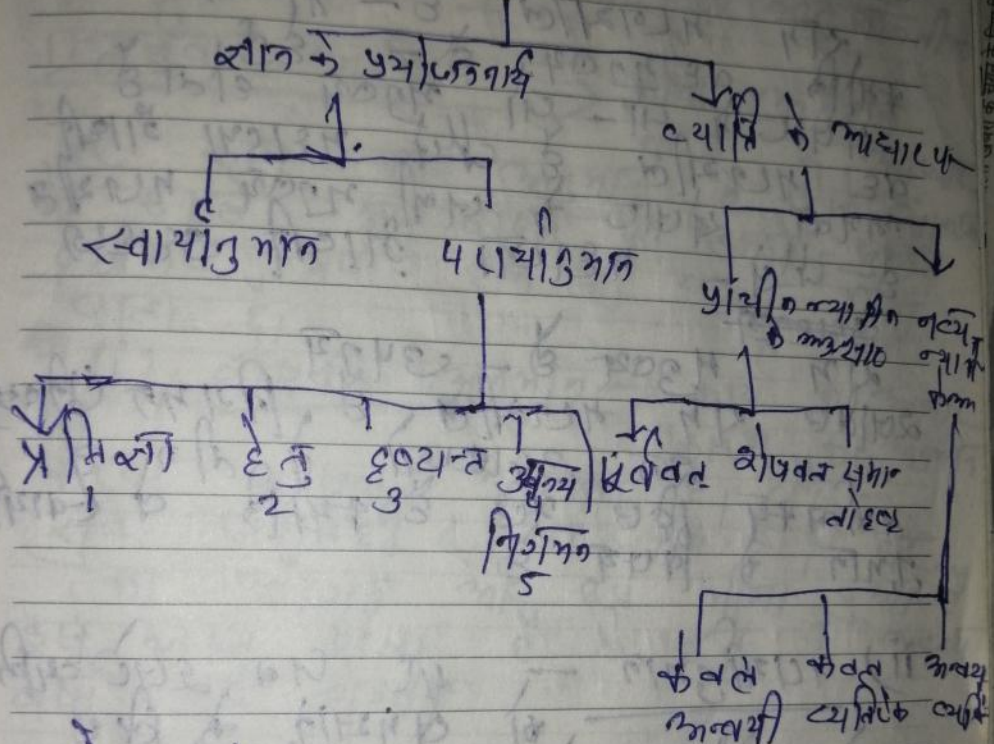 ज्ञान के प्रयोजनार्थ
व्याप्ति के आधार पर
स्वार्थानुमान
परार्थानुमान
प्राचीन न्याय
के अनुसार
नव्य
न्याय
प्रतिज्ञा
1
हेतु
2
दृष्टान्त
3
उपनय
4
निगमन
5
पूर्ववत
शेषवत
सामान्य
तोदृष्ट
केवल
अन्वयी
केवल
व्यतिरेक
अन्वय